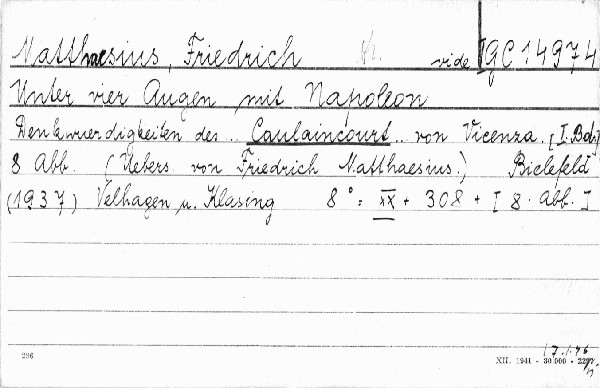 Matthaesius, Friedrich vide IGC 14974
Unter vier Augen mit Napoleon
Denkwuerdigkeiten des .. Caulaincourt .. von Vicenza. [I. Bd.]
8 Abb. (Uebers. von Friedrich Matthaesius.) Bielefeld
(1937) Velhagen u. Klasing 8° = XX + 308 + [8. Abb.]
17.1.46
286 XII. 1941 - 30.000 -